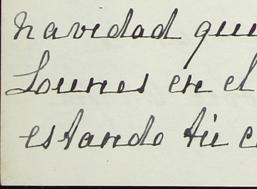 navidad que
Lounes en el
estando tú e